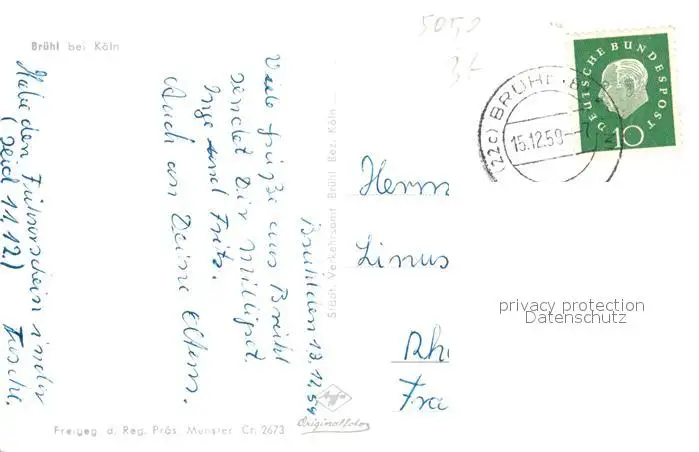 Brühl bei Köln
Brühl den 13.12.59
Viele Grüße aus Brühl
sendet Dir
Inge und Fritz.
Auch an Deine Eltern.
Habe den Führerschein in der
Tasche.
(seid 11.12.)
Städt. Verkehrsamt Brühl Bez. Köln
Freigeg d. Reg. Präs Münster Cr. 2673
Agfa
Originalfoto
5050
DEUTSCHE BUNDESPOST
10
(22c) BRÜHL
15.12.59
Herrn
Linus
Rh
Fra
privacy protection
Datenschutz